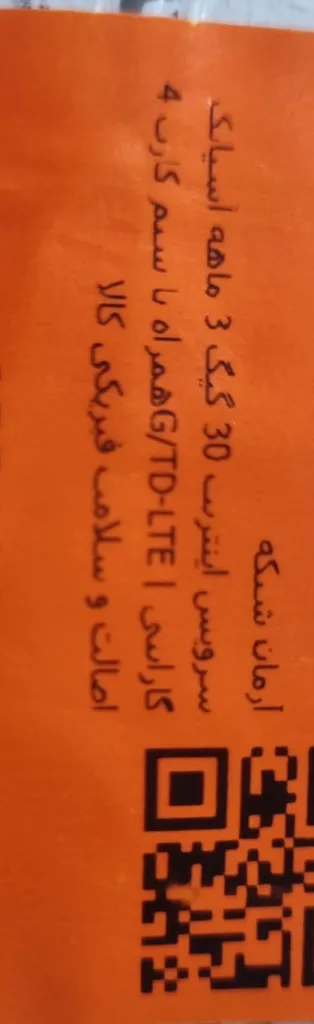 آرمان شبکه
سرویس اینترنت 30 گیگ 3 ماهه آسیاتک
همراه با سیم کارت 4G/TD-LTE | گارانتی
اصالت و سلامت فیزیکی کالا